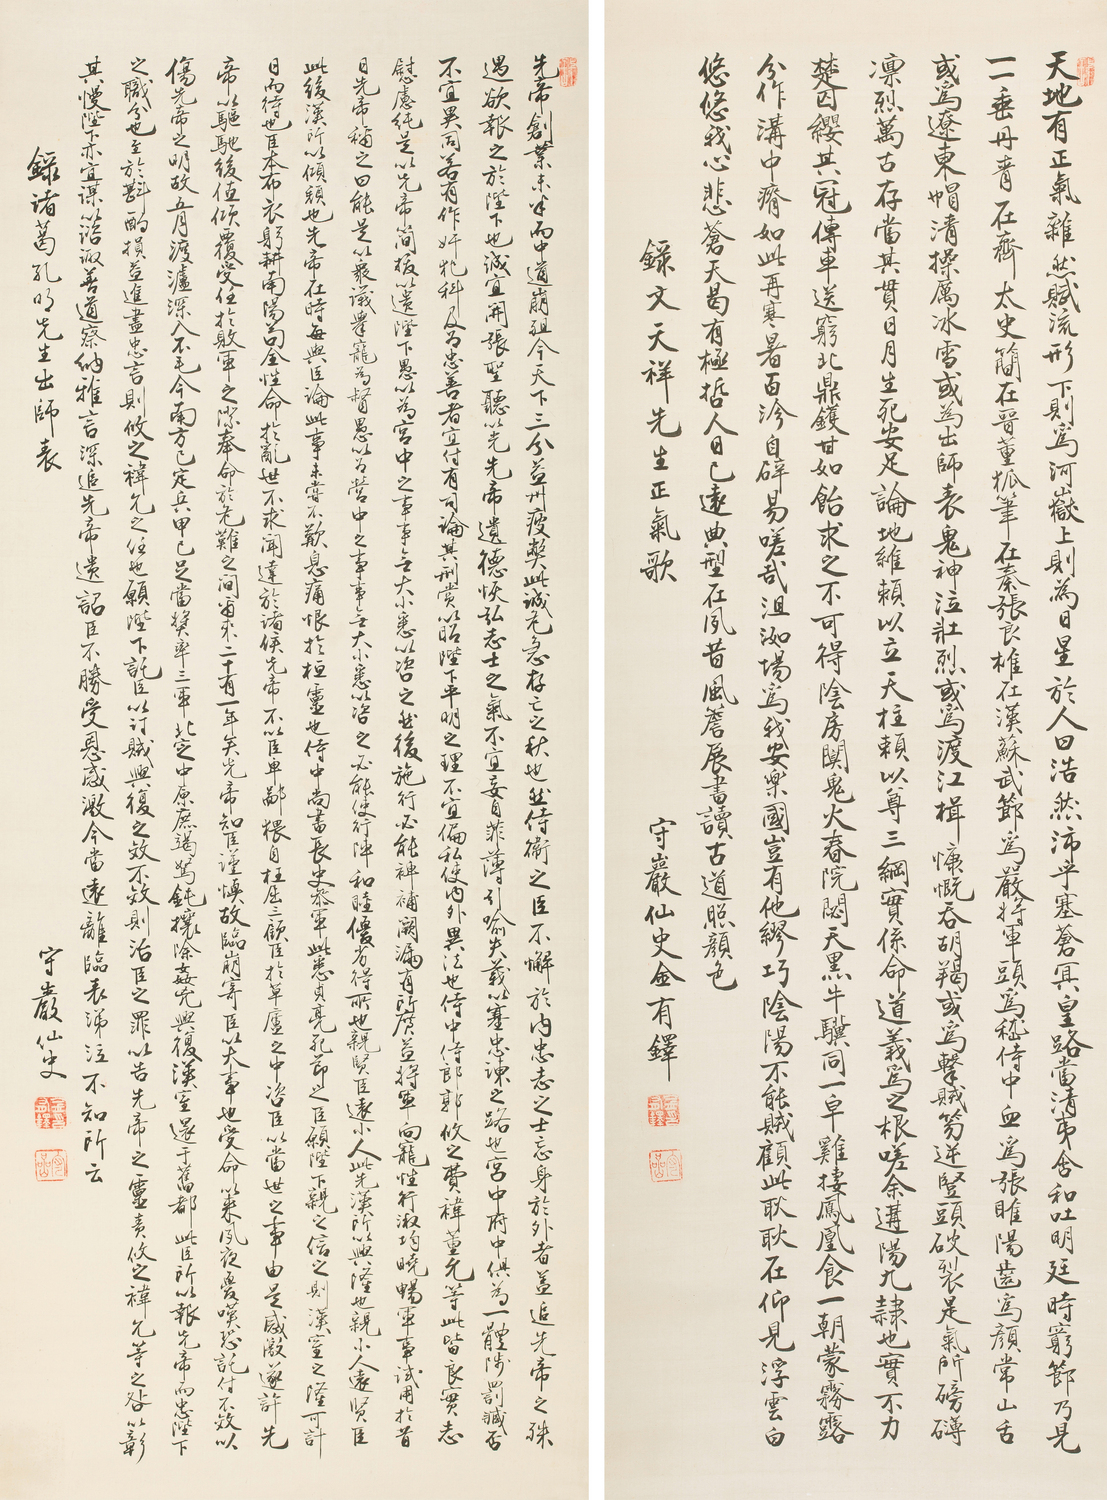 天地有正氣雜然賦流形下則爲河嶽上則為日星於人曰浩然沛乎塞蒼冥皇路當清夷含和吐明廷時窮節乃見
一一垂丹青在齊太史簡在晉董狐筆在秦張良椎在漢蘇武節爲嚴將軍頭爲嵇侍中血爲張睢陽齒爲顏常山舌
或爲遼東帽清操厲冰雪或為出師表鬼神泣壯烈或爲渡江楫慷慨吞胡羯或爲擊賊笏逆豎頭破裂是氣所磅礡
凛烈萬古存當其貫日月生死安足論地維賴以立天柱賴以尊三綱實係命道義爲之根嗟余遘陽九隸也實不力
楚囚纓其冠傳車送窮北鼎鑊甘如飴求之不可得陰房闃鬼火春院閟天黑牛驥同一皁雞棲鳳凰食一朝蒙霧露
分作溝中瘠如此再寒暑百沴自辟易嗟哉沮洳場爲我安樂國豈有他繆巧陰陽不能賊顧此耿耿在仰見浮雲白
悠悠我心悲蒼天曷有極哲人日已遠典型在夙昔風簷展書讀古道照顏色
錄文天祥先生正氣歌
守巖仙史金有鐸
先帝創業未半而中道崩殂今天下三分益州疲弊此誠危急存亡之秋也然侍衛之臣不懈於內忠志之士忘身於外者蓋追先帝之殊
遇欲報之於陛下也誠宜開張聖聽以光先帝遺德恢弘志士之氣不宜妄自菲薄引喻失義以塞忠諫之路也宮中府中俱為一體陟罰臧否
不宜異同若有作奸犯科及為忠善者宜付有司論其刑賞以昭陛下平明之理不宜偏私使內外異法也侍中侍郎郭攸之費禕董允等此皆良實志
慮純是以先帝簡拔以遺陛下愚以為宮中之事事無大小悉以咨之然後施行必能裨補闕漏有所廣益將軍向寵性行淑均曉暢軍事試用於昔
日先帝稱之曰能是以衆議舉寵為督愚以為營中之事事無大小悉以咨之必能使行陣和睦優劣得所也親賢臣遠小人此先漢所以興隆也親小人遠賢臣
此後漢所以傾頹也先帝在時每與臣論此事未嘗不歎息痛恨於桓靈也侍中尚書長史參軍此悉貞亮死節之臣願陛下親之信之則漢室之隆可計
日而待也臣本布衣躬耕南陽苟全性命於亂世不求聞達於諸侯先帝不以臣卑鄙猥自枉屈三顧臣於草廬之中咨臣以當世之事由是感激遂許先
帝以驅馳後值傾覆受任於敗軍之際奉命於危難之間爾來二十有一年矣先帝知臣謹慎故臨崩寄臣以大事也受命以來夙夜憂嘆恐託付不效以
傷先帝之明故五月渡瀘深入不毛今南方已定兵甲已足當獎率三軍北定中原庶竭駑鈍攘除姦兇興復漢室還于舊都此臣所以報先帝而忠陛下
之職分也至於斟酌損益進盡忠言則攸之禕允之任也願陛下託臣以討賊興復之效不效則治臣之罪以告先帝之靈責攸之禕允等之咎以彰
其慢陛下亦宜謀以諮諏善道察納雅言深追先帝遺詔臣不勝受恩感激今當遠離臨表涕泣不知所云
錄諸葛孔明先生出師表
守巖仙史